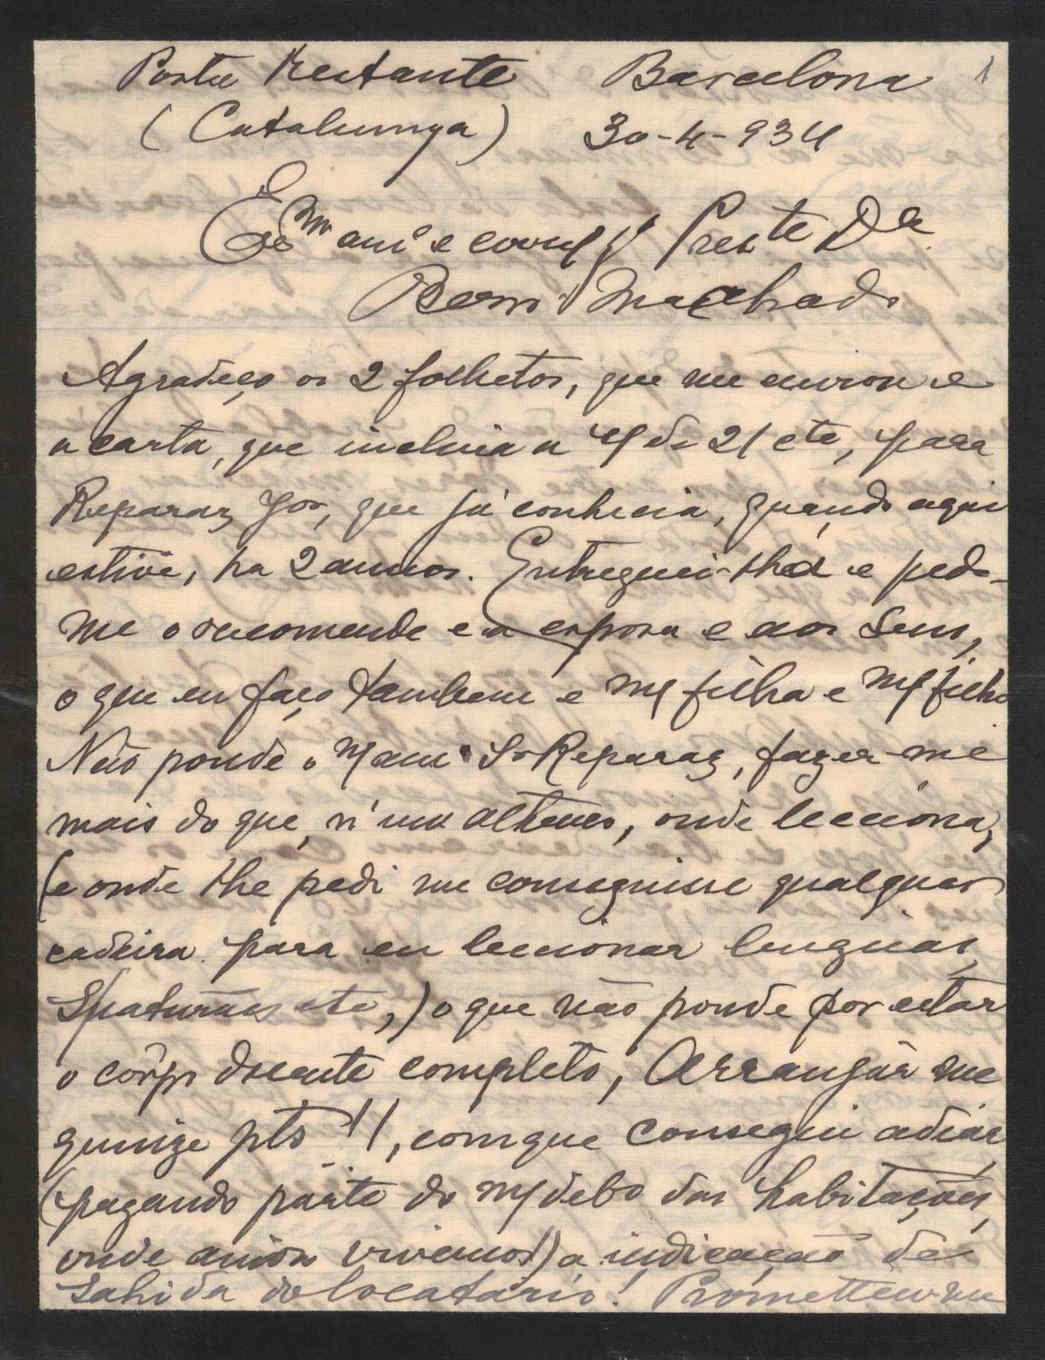 Posta Restante Barcelona 1
(Catalunya) 30-4-934
Exmo am° e Preste Dr
Bern Machado
Agradeço os 2 folhetos, que me enviou e
a carta, que incluia a de 21 cte, para
Reparaz Jor, que já conhecia, quando aqui
estive, ha 2 annos. Entreguei-lha e pede-
me o recomende e a esposa e aos Seus,
o que eu faço tambem e mª filha e mª filho
Não poude o am° Sr Reparaz, fazer-me
mais do que, n'um Atheneo, onde lecciona,
(e onde lhe pedi me conseguisse qualquer
cadeira para eu leccionar linguas,
etc,) o que não poude por estar
o côrpo docente completo, Arranjar me
quinze pts !!, com que consegui adiar,
(pagando parte do debo das habitações,
onde aínda vivemos!) a indicação de
Sahida do locatario! Prometteu-me